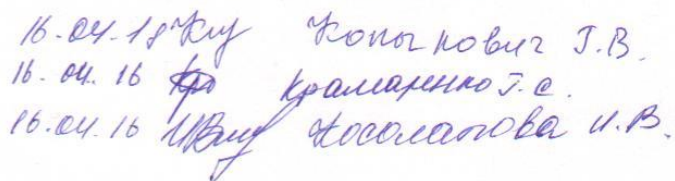 16.04.18 Копычович Т.В.
16.04.16 Краморенко Т.С.
16.04.16 Косолапова И.В.